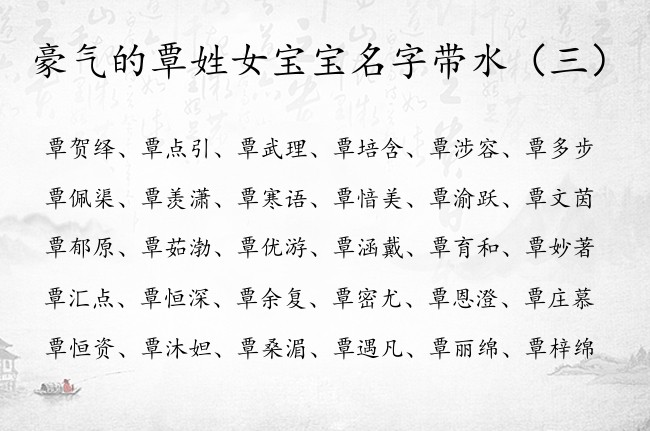 豪气的覃姓女宝宝名字带水（三）
覃贺绎、覃点引、覃武理、覃培含、覃涉容、覃多步
覃佩渠、覃羡潇、覃寒语、覃愔美、覃渝跃、覃文茵
覃郁原、覃茹渤、覃优游、覃涵戴、覃育和、覃妙著
覃汇点、覃恒深、覃余复、覃密尤、覃恩澄、覃庄慕
覃恒资、覃沐妲、覃桑湄、覃遇凡、覃丽绵、覃梓绵